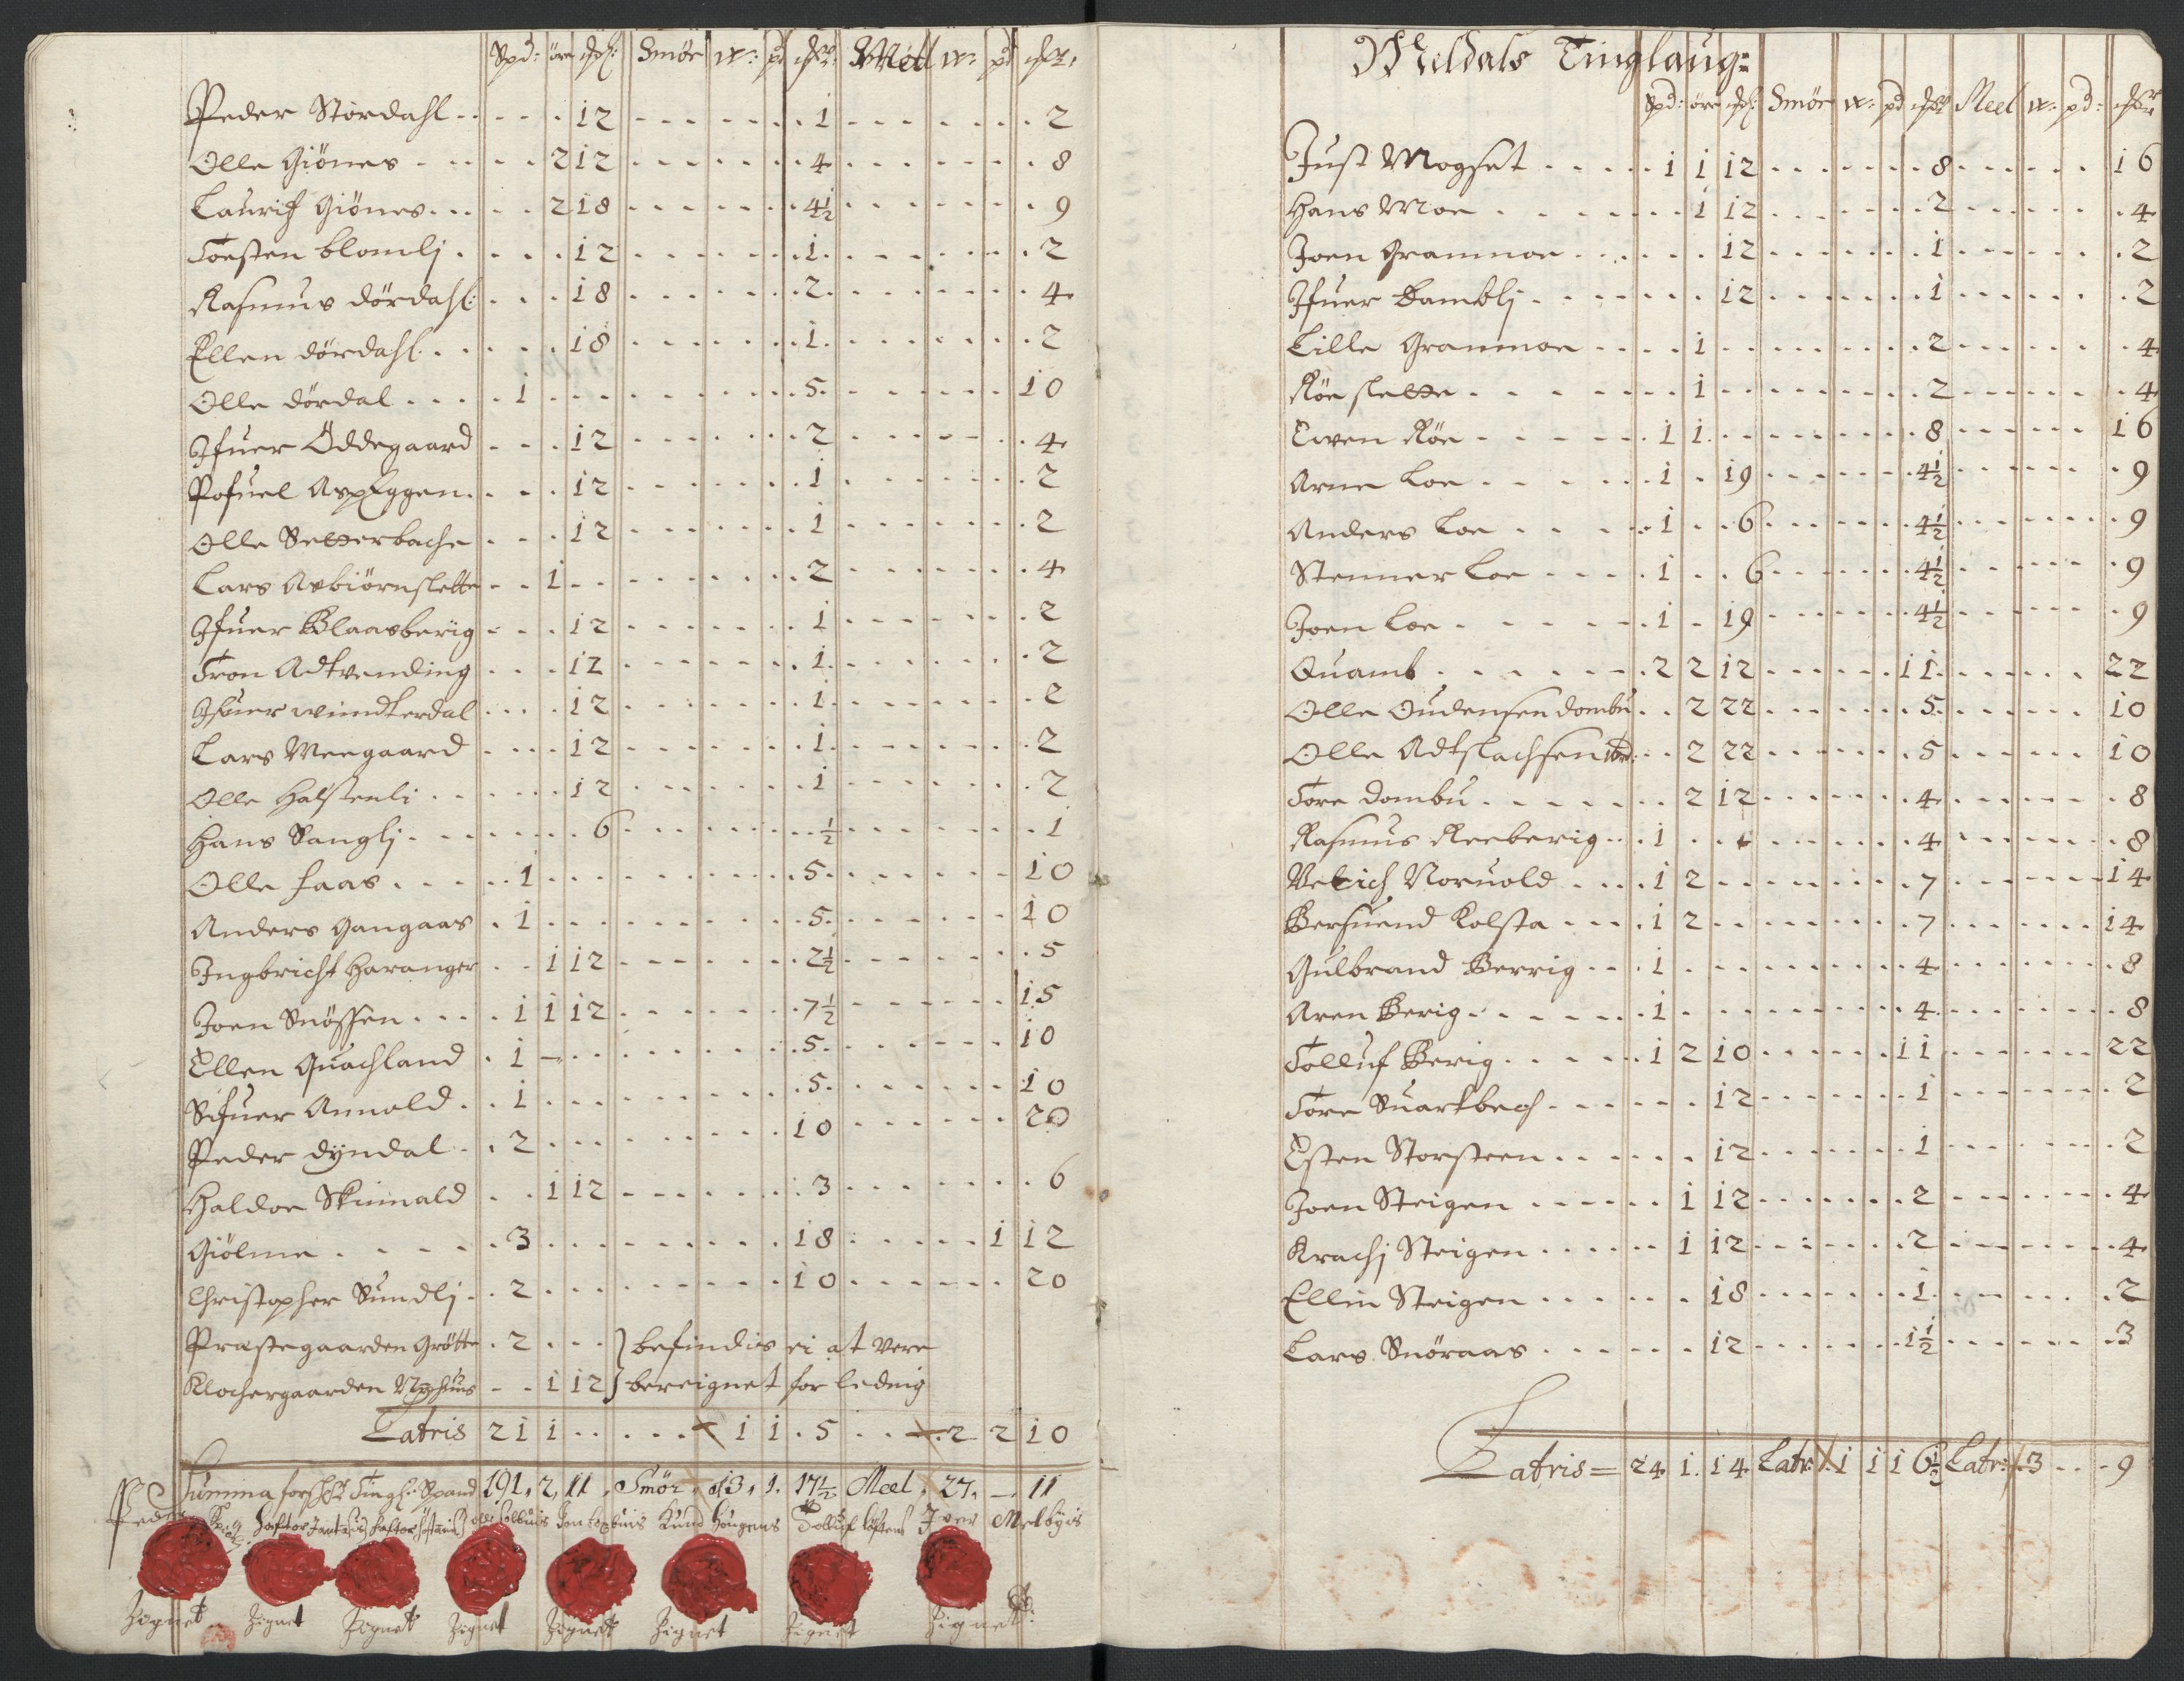 Spd: öre Smør w: pd Meel w: pd
Peder Stordahl 12 1 2
Olle Giönes 2 12 4 8
Lauritz Giönes 2 18 4½ 9
Torsten blomlj 12 1 2
Rasmus dördahl: 18 2 4
Ellen dördahl 18 1 2
Olle dördal 1 5 10
Ifuer Öddegaard 12 2 4
Pofuel AspEggen 12 1 2
Olle Setterbache 12 1 2
Lars Asbiörnslette 1 2 4
Ifuer Blaasberig 12 1 2
Tron Adtvending 12 1 2
Ifuer windterdal 12 1 2
Lars Meegaard 12 1 2
Olle Halstenli 12 1 2
Hans Sanglj 6 ½ 1
Olle Haas 1 5 10
Anders Gangaas 1 5 10
Ingbricht Haranger 1 12 2½ 5
Joen Snössen 1 1 12 7½ 15
Ellen Quachland 1 5 10
Sifuer Annald 1 5 10
Peder dyndal 2 10 20
Haldor Skiinald 1 12 3 6
Giölme 3 18 1 12
Christopher Sundlj 2 10 20
Præstegaarden Grötte 2 } befindis ei at vere
Klochergaarden Uphuus 1 12 } bereignet for leding
Latris 21 1 1 1 5 2 2 10
Summa Tingl: Spand 191, 2, 11, Smör 13, 1, 17½ Meel 27, — 11
Iver Melbyis
Zignet Zignet Zignet Zignet Zignet Zignet Zignet Zignet
Meldals Tinglaug=
Spd: öre Smör w: pd Meel w: pd:
Just Mogset 1 1 12 8 16
Hans Moe 1 12 2 4
Joen Granmoe 12 1 2
Ifuer Damblj 12 1 2
Lille Granmoe 1 2 4
Röe slette 1 2 4
Ewen Röe 1 1 8 16
Arne Loe 1 19 4½ 9
Anders Loe 1 6 4½ 9
Stenner Loe 1 6 4½ 9
Joen Loe 1 19 4½ 9
Quamb 2 2 12 11 22
Olle Oudensen dombu 2 22 5 10
Olle Adtslachsen 2 22 5 10
Tore dombu 2 12 4 8
Rasmus Reeberig 1 4 8
Noruold 1 2 7 14
Berfuend Kolsta 1 2 7 14
Gulbrand Berrig 1 4 8
Aren Berig 1 4 8
Tolluf Berig 1 2 10 11 22
Tore Suartbech 12 1 2
Esten Storsteen 12 1 2
Joen Steigen 1 12 2 4
Krachj Steigen 1 12 2 4
Ellin Steigen 18 1 2
Lars Snöraas 12 1½ 3
Latris= 24 1 14 Latr: 1 1 1 6½ Latr: 3 9